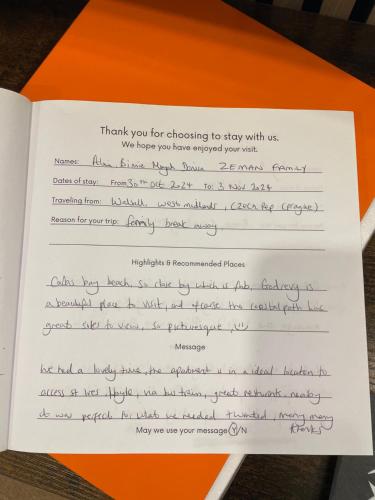 Thank you for choosing to stay with us.
We hope you have enjoyed your visit.
Names: ZEMAN FAMILY
Dates of stay: From 30th Oct 2024 To: 3 Nov 2024
Traveling from: Walsall, West midlands, (Czech Rep (Prague)
Reason for your trip: family break away
Highlights & Recommended Places
bay beach, so close by which is fab, Godrevy is
a beautiful place to visit, and of course the coastal path has
great sites to view, so picturesque,
Message
We had a lovely time, the apartment is in a ideal location to
access st ives, Hayle, via bus train, great resturants nearby
perfect for what we needed + wanted, many many
thanks
May we use your message Y/N